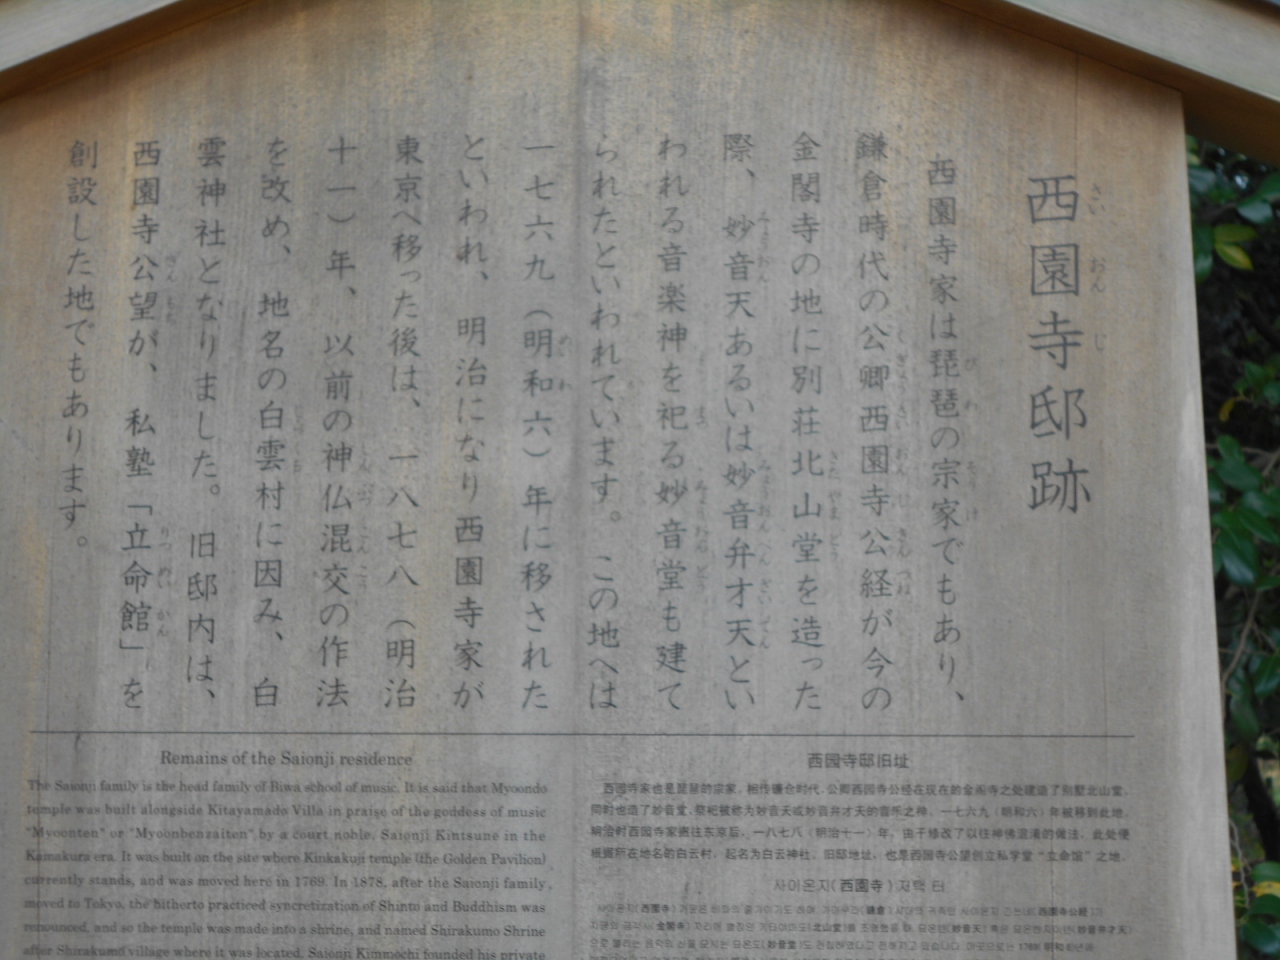 西園寺邸跡
西園寺家は琵琶の宗家でもあり、
鎌倉時代の公卿西園寺公経が今の
金閣寺の地に別荘北山堂を造った
際、妙音天あるいは妙音弁才天とい
われる音楽神を祀る妙音堂も建て
られたといわれています。この地へは
一七六九（明和六）年に移された
といわれ、明治になり西園寺家が
東京へ移った後は、一八七八（明治
十一）年、以前の神仏混交の作法
を改め、地名の白雲村に因み、白
雲神社となりました。旧邸内は、
西園寺公望が、私塾「立命館」を
創設した地でもあります。
Remains of the Saionji residence
The Saionji family is the head family of Biwa school of music. It is said that Myoondo
temple was built alongside Kitayamado Villa in praise of the goddess of music
"Myoonten" or "Myoonbenzaiten" by a court noble, Saionji Kintsune in the
Kamakura era. It was built on the site where Kinkakuji temple (the Golden Pavilion)
currently stands, and was moved here in 1769. In 1878, after the Saionji family
moved to Tokyo, the hitherto practiced syncretization of Shinto and Buddhism was
renounced, and so the temple was made into a shrine, and named Shirakumo Shrine
after Shirakumo village where it was located. Saionji Kimmochi founded his private
西园寺邸旧址
西园寺家也是琵琶的宗家，相传镰仓时代，公卿西园寺公经在现在的金阁寺之处建造了别墅北山堂，
同时也造了妙音堂，祭祀被称为妙音天或妙音弁才天的音乐之神，一七六九（明和六）年被移到此地，
明治时西园寺家搬往东京后，一八七八（明治十一）年，由于修改了以往神佛混淆的做法，此处便
根据所在地名的白云村，起名为白云神社。旧邸地址，也是西园寺公望创立私学堂“立命馆”之地。
사이온지(西園寺) 저택 터